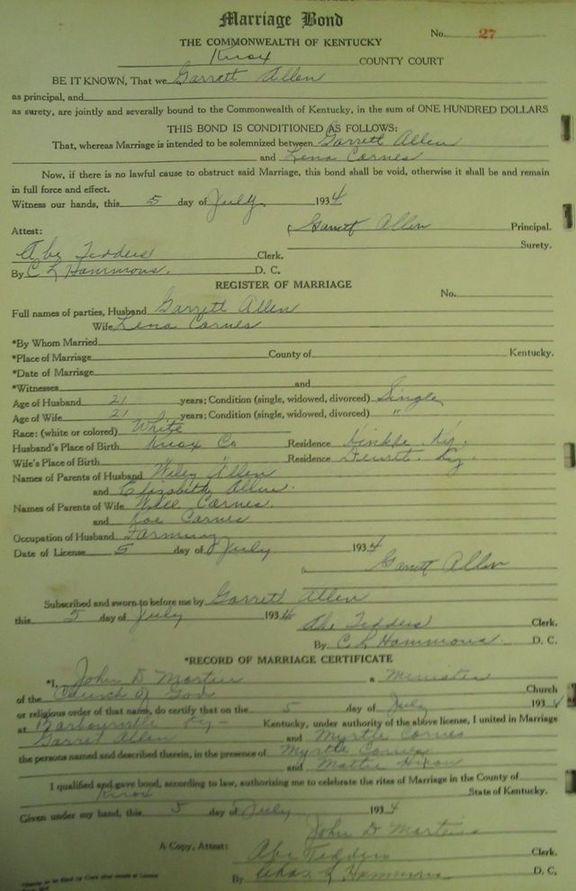 Marriage Bond
No. 27
THE COMMONWEALTH OF KENTUCKY
Knox COUNTY COURT
BE IT KNOWN, That we Garrett Allen
as principal, and
as surety, are jointly and severally bound to the Commonwealth of Kentucky, in the sum of ONE HUNDRED DOLLARS
THIS BOND IS CONDITIONED AS FOLLOWS:
That, whereas Marriage is intended to be solemnized between Garrett Allen
and Lena Carnes
Now, if there is no lawful cause to obstruct said Marriage, this bond shall be void, otherwise it shall be and remain
in full force and effect.
Witness our hands, this 5 day of July 1934
Garrett Allen Principal.
Attest:
Surety.
Abe Tedders Clerk.
By C L Hammons. D. C.
REGISTER OF MARRIAGE
No.
Full names of parties, Husband Garrett Allen
Wife Lena Carnes
*By Whom Married
*Place of Marriage County of Kentucky.
*Date of Marriage
*Witnesses and
Age of Husband 21 years; Condition (single, widowed, divorced) Single
Age of Wife 21 years; Condition (single, widowed, divorced) "
Race: (white or colored) White
Husband's Place of Birth Knox Co Residence Hinkle, Ky.
Wife's Place of Birth " Residence Dewitt, Ky.
Names of Parents of Husband Wiley Allen
and Elizabeth Allen.
Names of Parents of Wife Carnes.
and Carnes
Occupation of Husband Farming
Date of License 5 day of July 1934
Garrett Allen
Subscribed and sworn to before me by Garrett Allen
this 5 day of July 1934
Abe Tedders Clerk.
By C L Hammons D. C.
*RECORD OF MARRIAGE CERTIFICATE
*I, John D Martin a Minister
of the Church of God Church
or religious order of that name, do certify that on the 5 day of July 1934
at Barbourville Ky - Kentucky, under authority of the above license, I united in Marriage
Garret Allen and Myrtle Carnes
the persons named and described therein, in the presence of Myrtle Carnes
and Mattie Hixon
I qualified and gave bond, according to law, authorizing me to celebrate the rites of Marriage in the County of
Knox State of Kentucky.
Given under my hand, this 5 day of July 1934
John D Martin
A Copy, Attest: Abe Tedders Clerk.
By Chas L Hammons D. C.